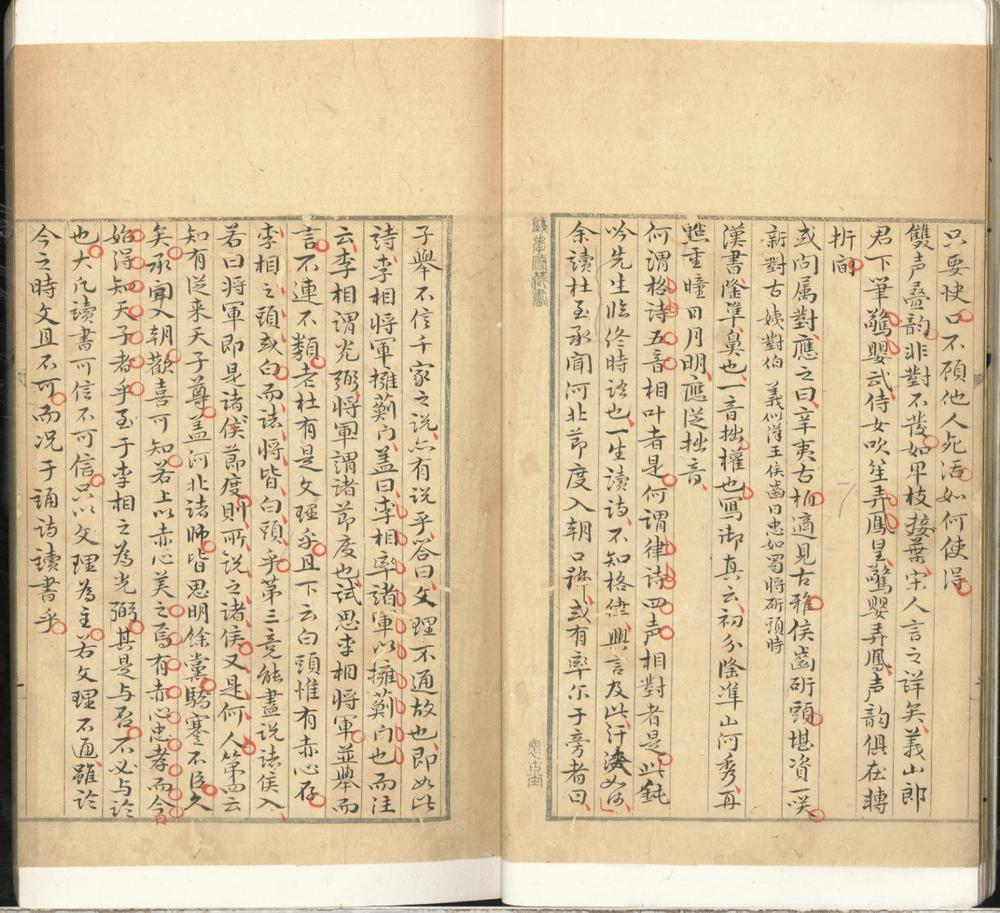 只要快口不顧他人死活如何使得
雙声叠韵非對不發如单枝接葉宋人言之详矣義山郎
君下筆驚嬰武侍女吹笙弄鳳皇驚嬰弄鳳声韵俱在轉
折间
或问属對應之曰辛夷古柏適見古雅侯齒斫頭堪資一咲
新對古姨對伯義似洋王侯齒日忠如蜀将斫頭時
漢書隆準鼻也一音拙權也寫御真云初分隆準山河秀再
點重瞳日月明應從拙音
何謂格诗五音相叶者是何謂律诗四声相對者是此鈍
吟先生临终時語也一生读诗不知格律興言及此汗决如何
余讀杜至承闻河北節度入朝口號或有率尔于旁者曰
子舉不信千家之说亦有说乎答曰文理不通故也即如此
詩李相将軍擁薊门盖曰李相率諸軍以擁薊门也而注
云李相謂光弼将軍謂諸節度也试思李相将軍並舉而
言不連不類老杜有是文理乎且下云白頭惟有赤心存
李相之頭或白而諸将皆白頭乎第三竟能盡说諸侯入
若曰将軍即是诸侯節度则所说之诸侯又是何人第四云
知有從来天子尊盖河北诸帅皆思明餘黨驕蹇不臣久
矣承闻入朝歡喜可知若上以赤心美之焉有赤心忠孝而今日
始得知天子者乎至于李相之為光弼其是与否不必与论
也大凡读書可信不可信只以文理為主若文理不通雖於
今之時文且不可而况于誦诗讀書乎